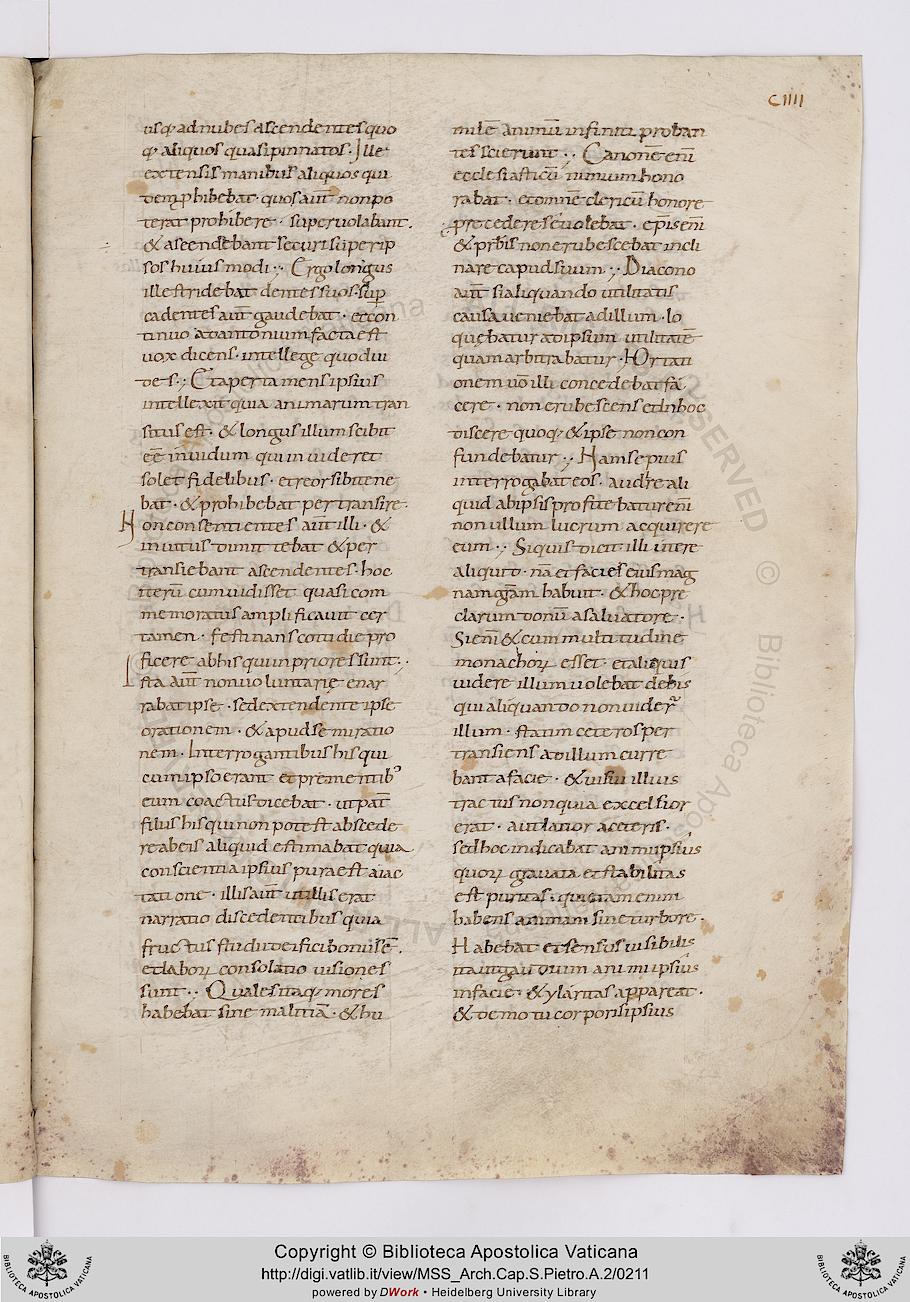 CIIII
usq; ad nubes ascendentes quo
q; aliquos quasi pinnatos · Ille
extensis manibus aliquos qui
dem phibebat · quos aut̄ non po
terat prohibere · supervolabant.
& ascendebant securi super ip
sos huius modi ·, Ergo longus
ille stridebat dentes suos · sup̄
cadentes aut̄ gaudebat · et con
tinuo ad antonium facta est
vox dicens · intellege quod vi
des ·, Et aperta mens ipsius
intellexit quia animarum tran
situs est · & longus illum scibit
eē invidum qui invideret
solet fidelibus · et reos sibi tene
bat · & prohibebat pertransire ·
Non consentientes aut̄ illi · &
invitus dimittebat & per
transiebant ascendentes · hoc
iterū cum vidisset quasi com
memoratus amplificavit cer
tamen · festinans cotidie pro
ficere ab his qui in priore ssunt ·,
Ista aut̄ non voluntarię enar
rabat ipse · sed extendente ipse
orationem · & apud se miratio
nem · Interrogantibus his qui
cum ipso erant et prementib'
eum coactus dicebat · ut pat̄
filiis his qui non potest abscede
re ab eis aliquid estimabat quia
conscientia ipsius pura est a iac
tatione · illis aut̄ utillis erat
narratio discedentibus quia
fructus studii deifici bonus ē̄.
et laboꝝ consolatio visiones
sunt ·, Quales itaq; mores
habebat sine malitiā · & hu
milē animū infiniti proban
tes scierunt ·, Canonē enī
ecclesiasticū nimium hono
rabat · et omnē clericū honore
procedere se volebat · episenī
& prb̄is non erubescebat incli
nare capud suum ·, Diacono
aut̄ si aliquando utilitatis
causa veniebat ad illum · lo
quębatur ad ipsum utilitatē
quam arbitrabatur · Hortati
onem v̄o illi concedebat fa
cere · non erubescens et in hoc
discere quoq; & ipse non con
fundebatur ·, Nam sepius
interrogabat eos · audire ali
quid ab ipsis profitebatur enī
non ullum lucrum acquirere
eum ·, Si quis dicit illi utere
aliquid · nā et facies eius mag
nam grām habuit · & hoc pre
clarum donū a salvatore ·
Si enī & cum multitudine
monachoꝝ esset · et aliquis
videre illum volebat de his
qui aliquando non vider̄
illum · statim ceteros per
transiens ad illum curre
bant a facie · & visui illius
tractus non quia excelsior
erat · aut latior a ceteris ·
sed hoc indicabat animi ipsius
quoꝝ gravata et stabilitas
est puritas · quietam enim
habens animam sine turbore ·
Habebat et sensus visibilis
ita ut gaudium animi ipsius
in facie · & ylaritas appareat ·
& de motu corporis ipsius
Copyright © Biblioteca Apostolica Vaticana
http://digi.vatlib.it/view/MSS_Arch.Cap.S.Pietro.A.2/0211
powered by DWork • Heidelberg University Library